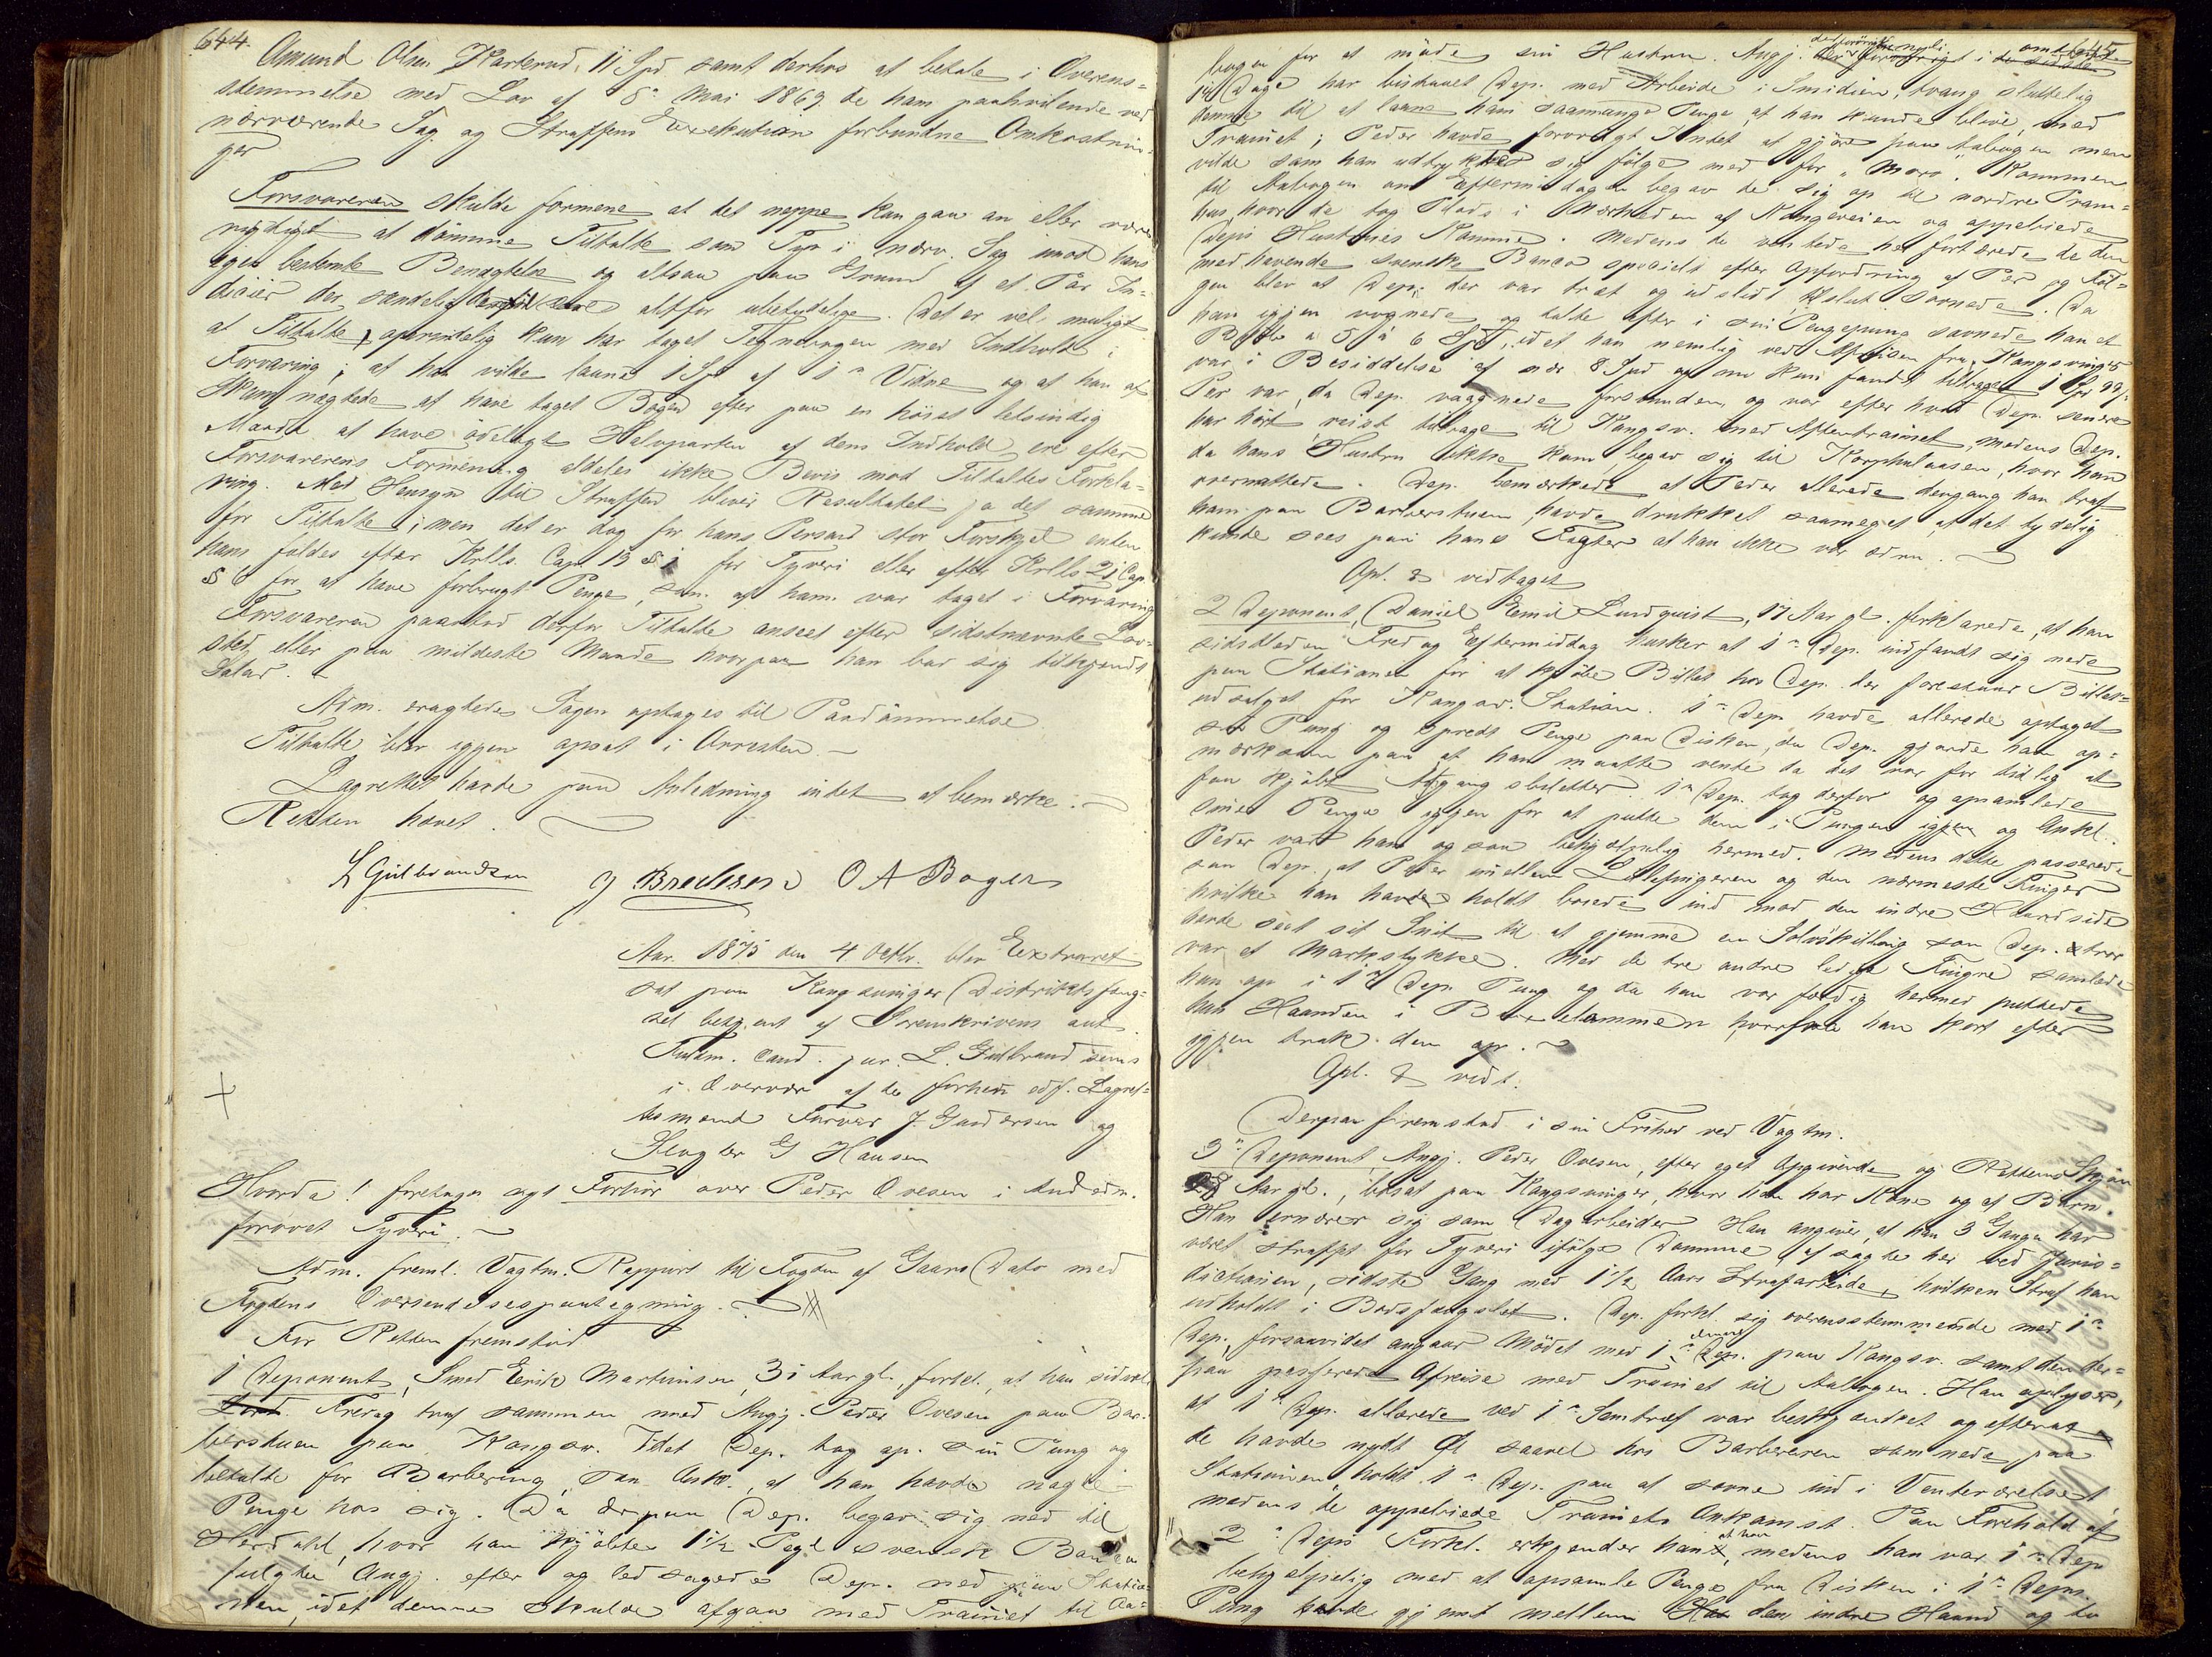 644.
Amund Olsen Karterud, 11 Spd samt derhos at betale i Overens=
stemmelse med Lov af 8de Mai 1869 de ham paahvilende ved
nærværende Sag og Straffens Exekution forbundne Omkostnin=
ger
Forsvareren skulde formene at det neppe kan gaa an eller være
rigtigt at dömme Tiltalte som Tyv i nærv. Sag imod hans
egen bestemte Benægtelse og altsaa paa Grund af et Par In=
dicier der sandelig ere altfor ubetydelige. Det er vel muligt
at Tiltalte oprindelig kun har taget Tegnebogen med Indhold i
Forvaring; at han vilde laane 1 Spd af 1n Vidne og at han af
Skam nægtede at have taget Bogen efter paa en höist letsindig
Maade at have ödelagt Halvparten af dens Indhold, ere efter
Forsvarerens Formening aldeles ikke Bevis mod Tiltaltes Forkla=
ring. Med Hensyn til Straffen bliver Resultatet jo det samme
for Tiltalte; men det er dog for hans Person stor Forskjel enten
han faldes efter Krlls. Cap. 19 § 1 for Tyveri eller efter Krlls 21 Cap.
§ 6 for at have forbrugt Penge, som af ham var taget i Forvaring
Forsvareren paastod derfor Tiltalte anseet efter sidstnævnte Lov=
sted eller paa mildeste Maade hvorpaa han bar sig tilkjendt
Salær.
Adm. eragtede Sagen optages til Paadömmelse
Tiltalte blev igjen apsat i Arresten. –
Lagrettet havde paa Anledning intet at bemærke. –
Retten hævet.
L Gulbrandsen J Bredesen O A Boger
Aar 1875 den 4 Octbr. blev Extraret
sat paa Kongsvinger Distriktsfæng=
sel betjent af Sorenskriverens aut.
Fuldm. Cand. jur. L. Gulbrandsen
i Overvær af de forhen edf. Lagret=
tesmænd Farver J Gundersen og
Slagter G Hansen
Hvorda! foretoges sagt Forhör over Peder Ovesen i Anledn.
forövet Tyveri. –
Adm. freml. Vagtm. Rapport til Fogden af Gaars Dato med
Fogdens Oversendelsespaategning. –
For Retten fremstod
1 Deponent, Smed Erik Martinsen 31 Aar gl., forkl., at han sidstl.
Fredag traf sammen med Angj. Peder Ovesen paa Bar=
berstuen paa Kongsv. Idet Dep. tog op sin Pung og
betalte for Barbering, saa Ank., at han havde nogle
Penge hos sig. Da derpaa Dep. begav sig ned til
Herdahl, hvor han kjöbte 1½ Pegl svensk Banco
fulgte Angj. efter og ledsagede Dep. ned paa Statio=
nen, idet denne skulde afgaa med Trainet til Aa=
645
bogen for at möde sin Hustru. Angj. i
Dage har biskaaret Dep. med Arbeide i Smidien, trang sluttelig
denne til at laane ham saamange Penge, at han kunde blive med
Trainet; Peder havde forövrigt Intet at gjöre paa Aabogen men
vilde som han udtrykte sig fölge med for „Moro". Kommen
til Aabogen om Eftermiddagen begav de sig op til nordre Pram=
hus, hvor de tog Plads i Nærheden af Kongeveien og oppebiede
Deps Hustrues Komme. Medens de ventede her fortærede de den
medhavende svenske Banco specielt efter Opfordring af Per og Föl=
gen blev at Dep. der var træt og udslidt tilslut sovnede. Da
han igjen vognede og talte efter i sin Pengepung savnede han et
Belöb a 5 á 6 Spd., idet han nemlig ved Afreisen fra Kongsvinger
var i Besiddelse af over 8 Spd og nu kun fandt tilbage 1 Spd 99 s.
Per var, da Dep. vaagnede forsvunden, og var efter hvad Dep. senere
har hört reist tilbage til Kongsv. med Aftentrainet, medens Dep.
da hans Hustru ikke kom, begav sig til Korphulaasen, hvor han
overnattede. Dep. bemærkede at Peder allerede dengang han traf
ham paa Barberstuen, havde drukket saameget, at det tydelig
kunde sees paa hans Fagter at han ikke var ædru. –
Opl. & vedtaget
2 Deponent, Daniel Emil Lundquist, 17 Aar gl. forklarede, at han
sidstleden Fredag Eftermiddag husker at 1n Dep. indfandt sig nede
paa Stationen for at kjöbe Billet hos Dep. der forestaar Billet=
udsalget for Kongsv. Station. 1n Dep. havde allerede optaget
sin Pung og spredt Penge paa Disken, da Dep. gjorde ham op=
mærksom paa at han maatte vente da det var for tidlig at
faa kjöbt Adgangsbilletter. 1n Dep. tog derfor og opsamlede
sine Penge igjen for at putte dem i Pungen igjen og Ankl.
Peder var ham ogsaa behjelpelig hermed. Medens dette passerede
saa Dep., at Peder mellem Lillefingeren og den nærmeste Finger
hvilke han havde holdt böiede ind mod den indre Haandside
havde seet sit Snit til at gjemme en Sölvskilling som Dep. tror
var et Markstykke. Med de tre andre ledige Fingre samlede
han op i 1n Dep. Pung og da han var færdig hermed puttede
han Haanden i Buxelommen, hvorfra han kort efter
igjen trak den op. –
Opl. & vedt.
Derpaa fremstod i sin Frihed ved Vagtm.
3n Deponent Angj. Peder Ovesen, efter eget Opgivende og Rettens Skjön
28 Aar gl., bosat paa Kongsvinger, hvor han har Kone og et Barn.
Han ernærer sig som Dagarbeider. Han angiver, at han 3 Gange har
været straffet for Tyveri ifölge Domme afsagte her ved Juris=
dictionen, sidste Gang med 1½ Aars Strafarbeide, hvilken Straf han
udholdt i Bodsfængslet. Dep. forkl. sig overensstemmende med 1n
Dep., forsaavidt angaar Mödet med 1n Dep. paa Kongsv. samt den der=
paa passerede Afreise med Trainet til Aabogen. Han oplyser,
at 1n Dep. allerede ved 1n Sentræf var beskjænket og efterat
de havde nydt Öl saavel hos Barbereren som nede paa
Stationen holdt 1n Dep. paa at sovne ind i Venteværelset
medens de oppebiede Trainets Ankomst. Paa Forehold af
2n Deps Forkl. erkjender han at han, medens han var 1n Dep
behjelpelig med at opsamle Penge fra Disken i 1n Deps.
Pung havde gjemt mellem den indre Haand og to